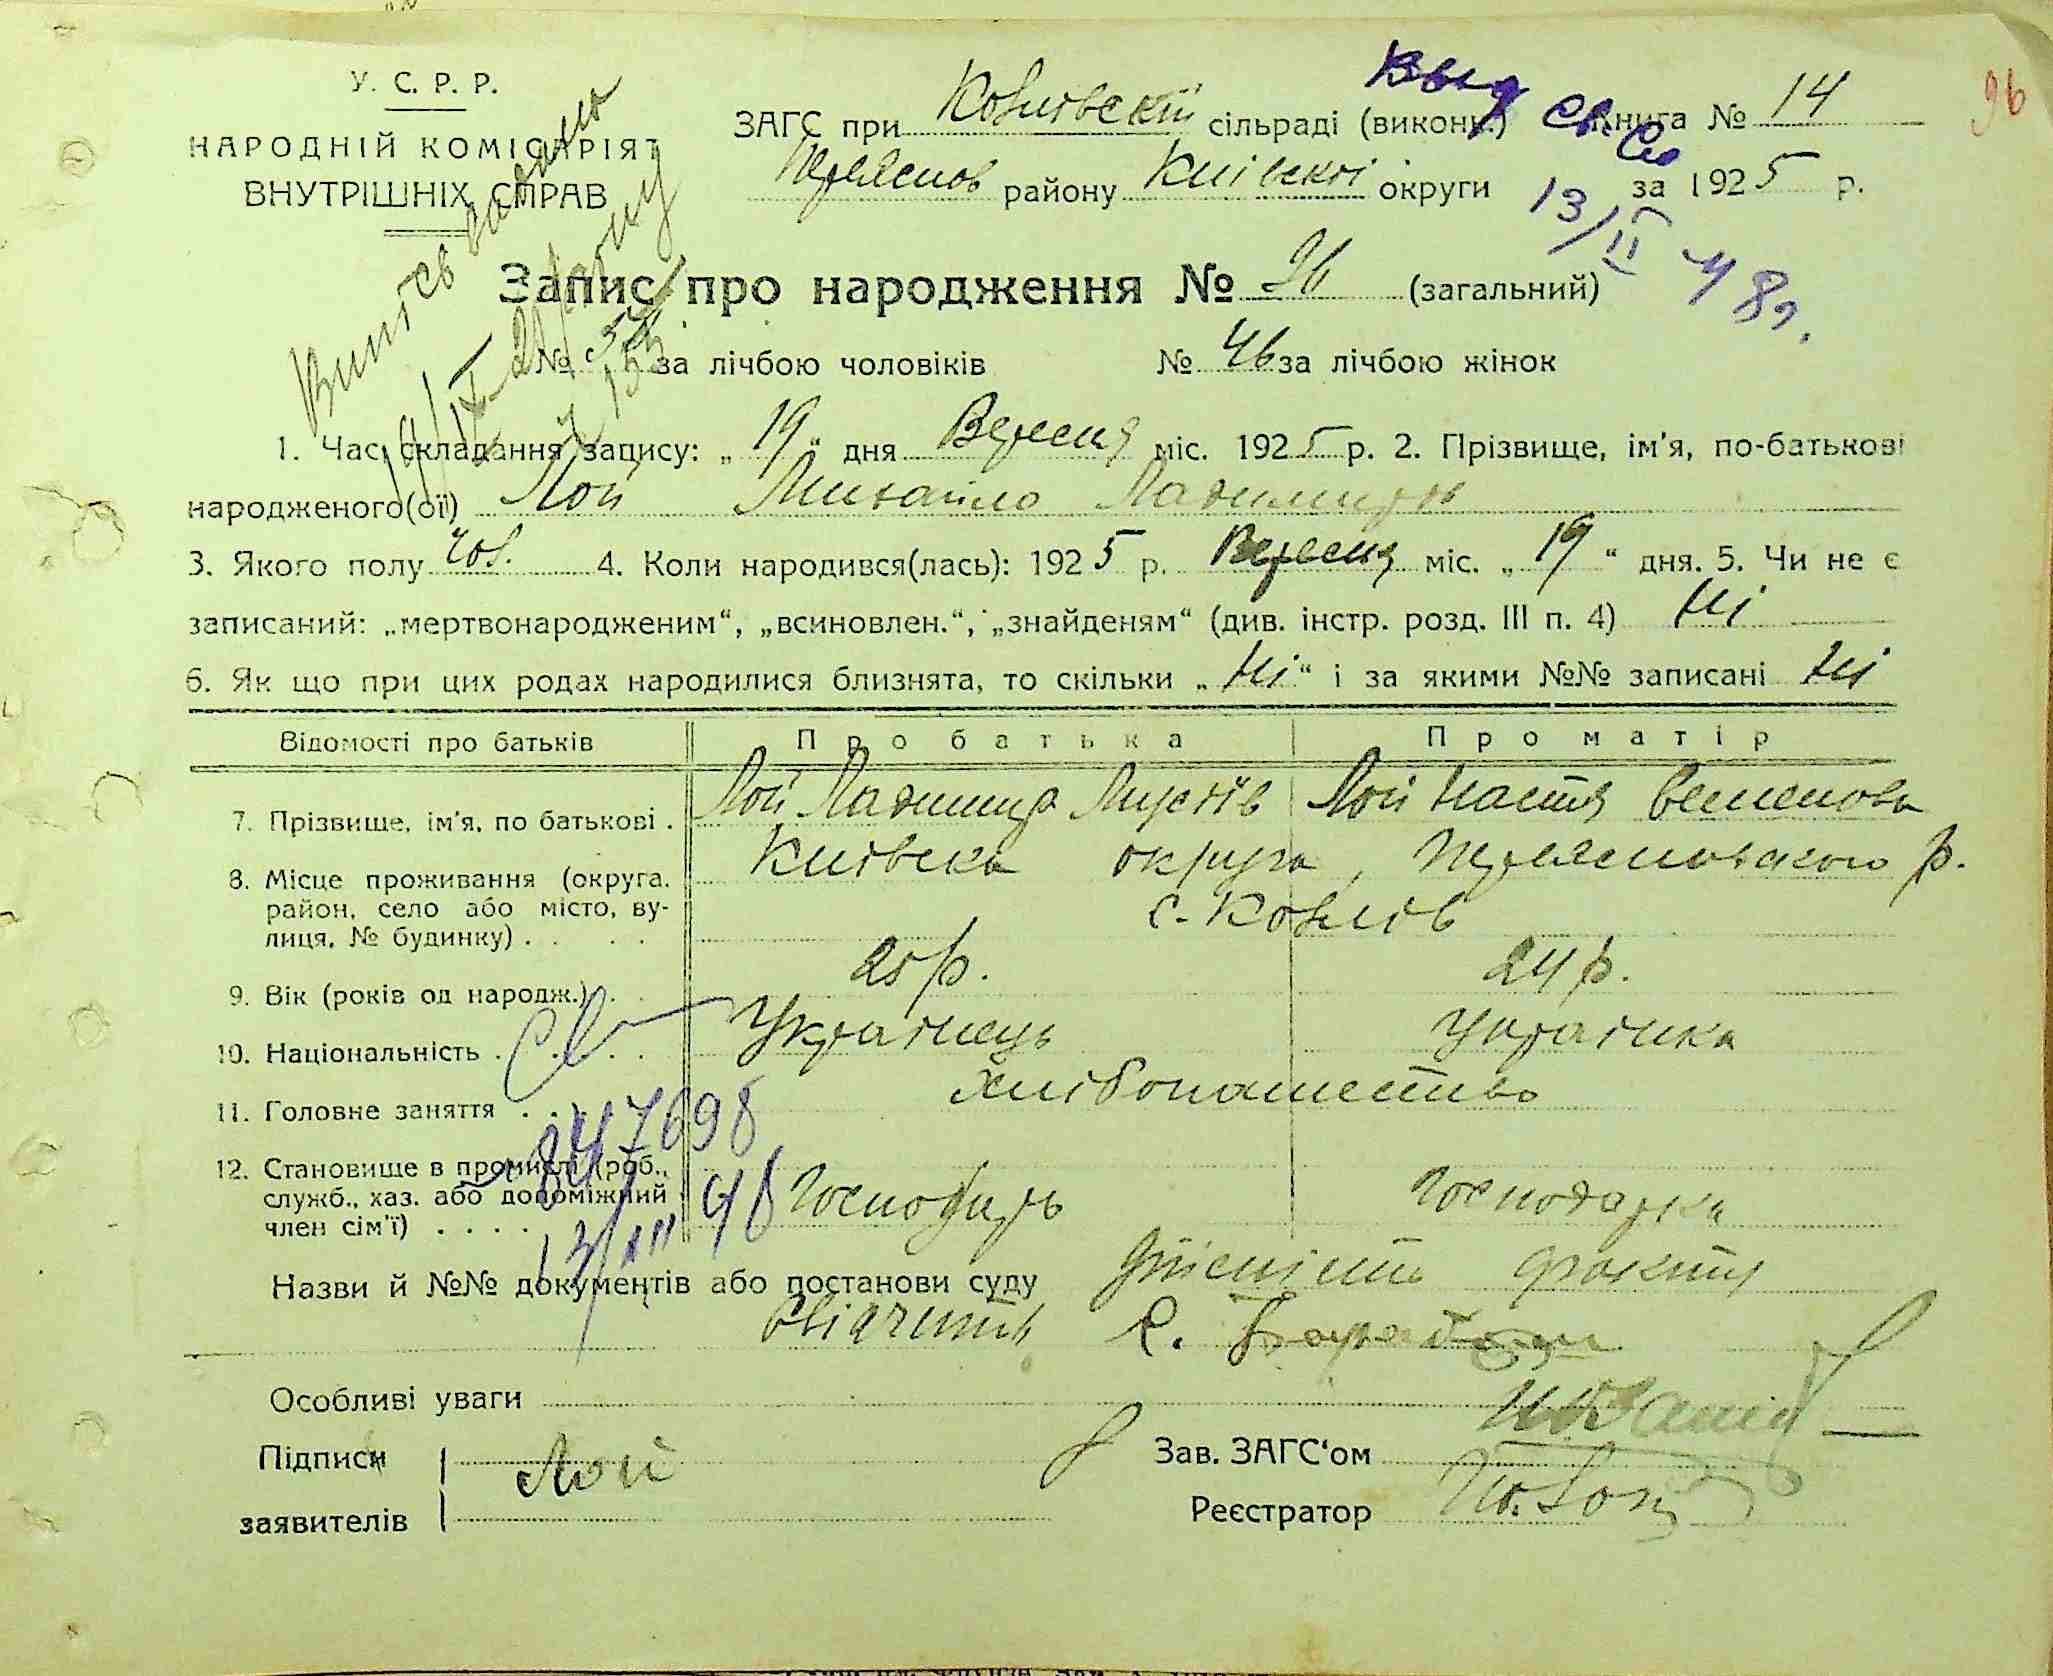 96
У. С. Р. Р.
НАРОДНІЙ КОМІСАРІЯТ
ВНУТРІШНІХ СПРАВ
ЗАГС при Ковлівській сільраді (виконк.) Книга № 14
району Київскої округи за 1925 р.
13/II 48г.
Запис про народження № 96 (загальний)
№ за лічбою чоловіків № 46 за лічбою жінок
1. Час складання запису: „19“ дня Вересня міс. 1925 р. 2. Прізвище, ім'я, по-батькові
народженого(ої) Лой Михайло Ладимирів
3. Якого полу чов. 4. Коли народився(лась): 1925 р. Вересня міс. „19“ дня. 5. Чи не є
записаний: „мертвонародженим“, „всиновлен.“, „знайденям“ (див. інстр. розд. III п. 4) Ні
6. Як що при цих родах народилися близнята, то скільки „Ні“ і за якими №№ записані Ні
Відомості про батьків Про батька Про матір
7. Прізвище, ім'я, по батькові . Лой Ладимир Лой Настя Семенова
8. Місце проживання (округа, район, село або місто, вулиця, № будинку) . . . . Київска округа, р.
с. Ковлів
9. Вік (років од народж.) . 25 р. 24 р.
10. Національність . . . . Українець Українка
11. Головне заняття . . . Хлібопашество
12. Становище в промислі (роб., служб., хаз. або допоміжний член сім'ї) . . . . Господарь Господарка
847698
13/III 48
Назви й №№ документів або постанови суду Дійсність факту
свідчить
Особливі уваги
Підписи заявителів Лой
Зав. ЗАГС'ом
Реєстратор